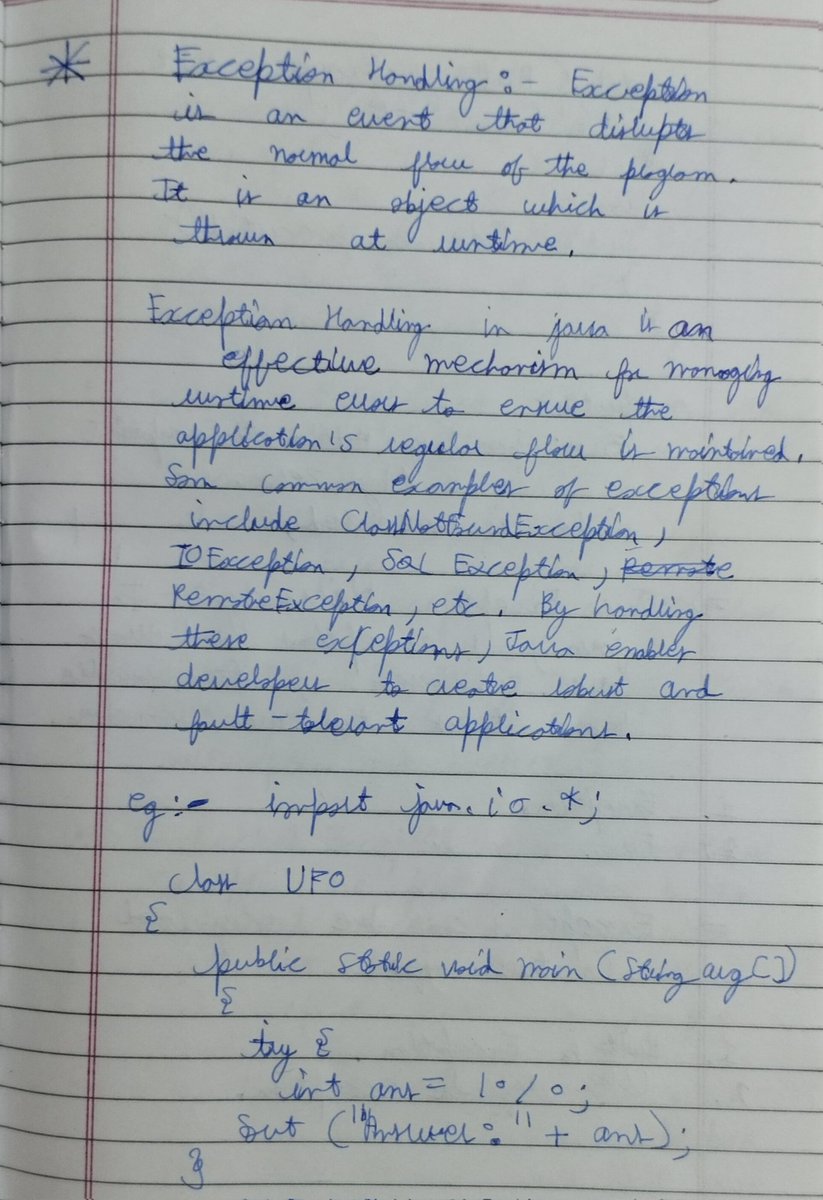 * Exception Handling :- Exception
is an event that disrupts
the normal flow of the program.
It is an object which is
thrown at runtime.
Exception Handling in java is an
effective mechanism for managing
runtime errors to ensure the
application's regular flow is maintained.
Som common examples of exceptions
include ClassNotFoundException,
IOException, SQL Exception, Remote
RemoteException, etc. By handling
these exceptions, Java enables
developers to create robust and
fault-tolerant applications.
eg :- import java.io.*;
class UFO
{
public static void main (String arg[])
{
try {
int ans = 10/0;
Sout ("Answer:" + ans);
}